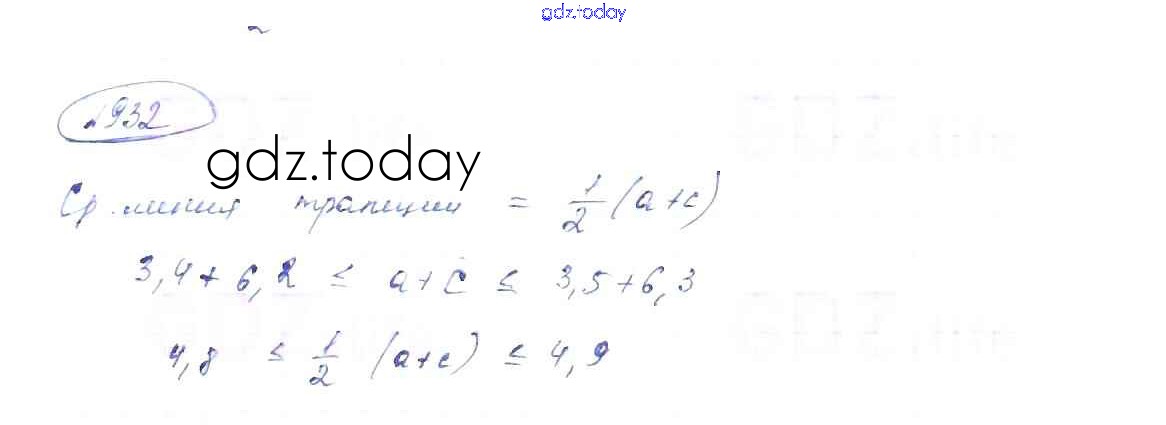 gdz.today
№932
gdz.today
Ср. линия трапеции = 1/2 (a+c)
3,4+6,2 ≤ a+c ≤ 3,5+6,3
4,8 ≤ 1/2 (a+c) ≤ 4,9